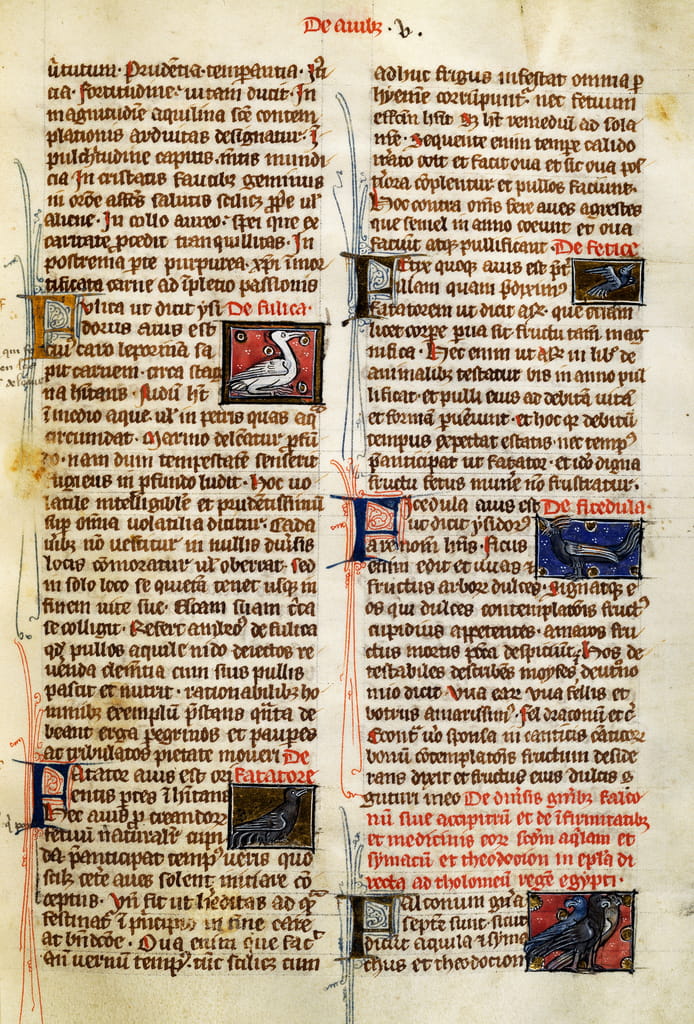 De auibꝫ · v ·
ũtutum · Prudẽtia · temꝑantia · Iu
cia · fortitudine · uitam ducit · In
magnitudĩe aquilina scẽ contem
plationis arduitas designatur · ĩ
pulcħtudine capitis · mẽtis mundi
cia In cristatis faucibꝫ geminus
in orõe affc̃s salutis scilicꝫ ꝓpe ul᷑
aliene · In collo aureo · spei que ex
caritate ꝓcedit tranquillitas · In
postrema ꝑte purpurea · xp̃i ĩmor
tificata carne ad ĩpletio passionis
Fvlica ut dicit ysi De fulica ·
dorus auis est
cui caro leporina sa
pit carnem · circa stag
na ħitans · Nidũ ħt
ĩ medio aque · ul᷑ in petris quas aq̃
circumdat · Marino delc̃atur ꝓfũ
do · nam dum tempestatẽ senserit
fugiens in ꝓfundo ludit · Hoc uo
latile intelligibile et prudẽtissimũ
suꝑ omnia uolatilia dicitur · Cada
ueribꝫ nõ uescitur in nullis diũsis
locis cõmoratur ul᷑ oberrat · sed
in solo loco se quietã tenet usqꝫ in
finem uite sue · Escam suam c̃ca
se colligit · Refert ambro᷒ de fulica
qd̃ pullos aquile nido deiectos re
uerenda clem̃tia cum suis pullis
pascit et nutrit · rationabilibꝫ ho
minibꝫ exemplũ p̃stans q̃nta de
beant erga ꝑegrinos et pauꝑes
ac tribulatos pietate moueri De
Fatator auis est ori fatatore
entis ꝑtes ĩħitans
Hec auis ꝓ creandorũ
fetuũ naturalẽ cupi
da p̃anticipat temp᷒ ueris quo
scilꝫ cetẽ aues solent iniciare cõ
ceptus · Vñ fit ut ħeditas ad q̃
festinat᷑ ĩ prĩcipio in fine care
at bñdcõe · Oua enim que fac̃
añ uernũ temp᷒ · tũc scilicꝫ cum
adhuc frigus infestat omnia ꝑ
hyemẽ corrũpunt᷑ · nec fetuum
effcũ ħnt · Nec ħt remediũ ad sola
mẽ · Sequente enim tempe calido
iterato coit et facit oua et sic oua pos
teriora cõplentur et pullos faciunt ·
Hoc contra om̃s fere aues agrestes
que semel in anno coeunt et oua
faciunt atqꝫ pullificant · De fetice
Fetix quoqꝫ auis est p̃t
illam quam p̃diximꝰ
fatatorem ut dicit ar᷒ · que etiam
licet corꝑe ꝑua sit fructu tam mag
nifica · Hec enim ut ar᷒ in lib᷒ de
animalibꝫ testatur bis in anno pul
lificat · et pulli eius ad debitã uitã
et formã ꝑueniunt · et hoc qꝛ debitũ
tempus expectat estatis · nec tempꝰ
p̃anticipat ut fatator · et iõ digna
fructu fetus munĩe nõ frustratur ·
Ficedula auis est De ficedula ·
ut dicit ysidorꝰ
a re nom̃ ħns · Ficus
enim edit et uuas ⁊
fructus arbor̃ dulces · Signatqꝫ e
os qui dulces contemplatõis fruct᷒
cupidius appetentes · amaros fru
ctus mortis pctã despiciũt · Hos de
testabiles describẽs moyses deut̃ono
mio dicit · Vua eaꝝ uua fellis et
botrus amarissimꝰ · Fel draconũ et c̃
Econt᷑ uo᷑ sponsa in canticis cãticoꝝ
bonũ cõtemplatõis fructum deside
rans dixit et fructus eius dulcis g
guturi meo De diũsis gñibꝫ falco
nũ siue accipitrũ et de ĩfirmitatibꝫ
et medicinis eoꝝ scdm aq̃lam et
symacũ et theodotion in epl᷑a di
recta ad tholomeũ regẽ egypti ·
Falconum gñ̃a
septẽ sunt · sicut
dicũt aquila ⁊ syma
chus et theodotion